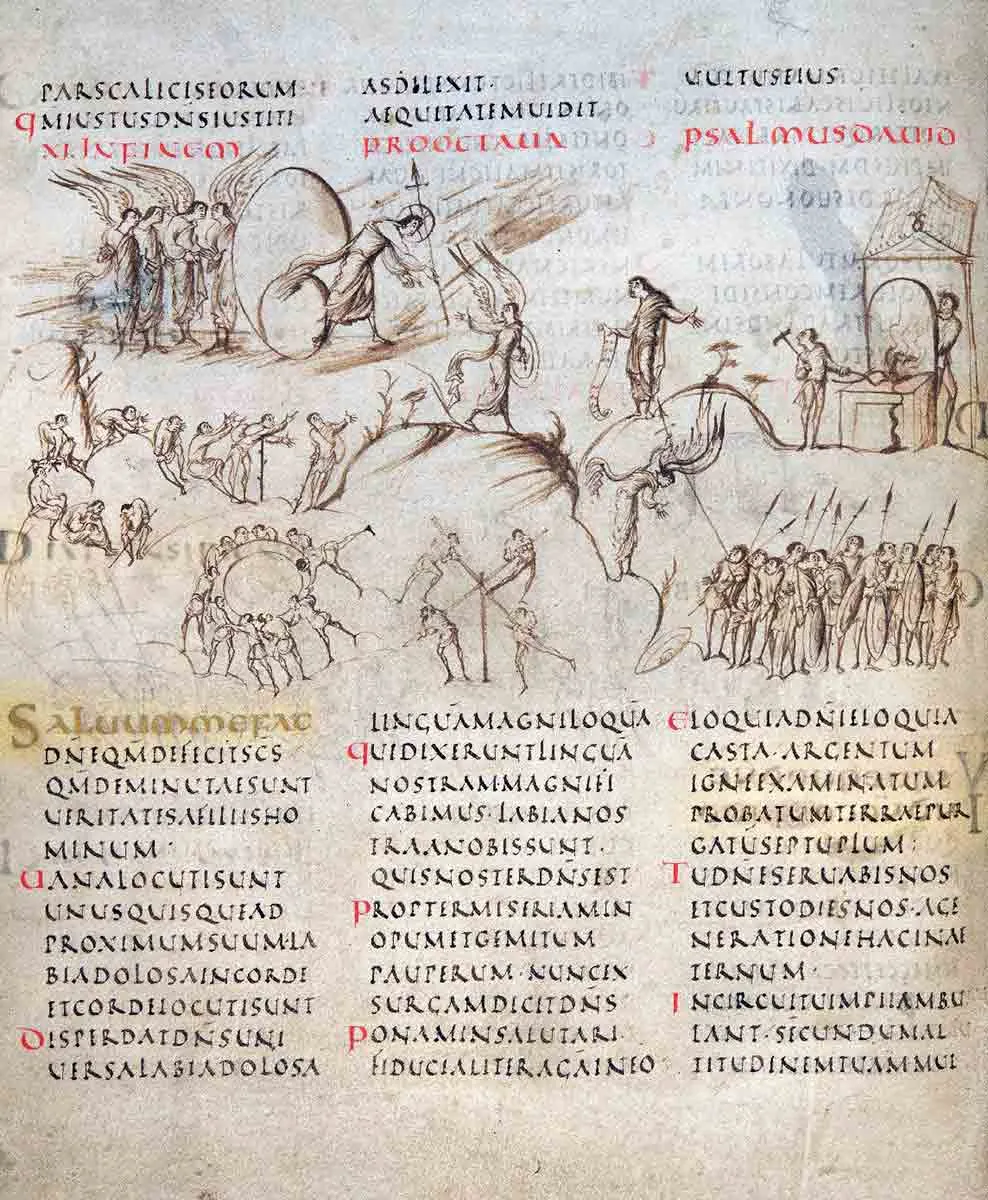 PARSCALICISEORUM
QMIUSTUSDN̄SIUSTITI
ASDILEXIT·
AEQUITATEMUIDIT
UULTUSEIUS
XI INFINEM PROOCTAUA PSALMUSDAUID
SALUUMMEFAC
DN̄EQM̄DEFECITSC̄S
QM̄DEMINUTAESUNT
UERITATESAFILIISHO
MINUM:
UANALOCUTISUNT
UNUSQUISQUEAD
PROXIMUMSUUM·LA
BIADOLOSAINCORDE
ETCORDELOCUTISUNT
DISPERDATDN̄SUNI
UERSALABIADOLOSA
LINGUĀMAGNILOQUĀ
QUIDIXERUNTLINGUĀ
NOSTRAMMAGNIFI
CABIMUS·LABIANOS
TRAANOBISSUNT·
QUISNOSTERDN̄SEST
PROPTERMISERIAMIN
OPUMETGEMITUM
PAUPERUM·NUNCEX
SURGAMDICITDN̄S
PONAMINSALUTARI·
FIDUCIALITERAGĀINEO
ELOQUIADN̄IELOQUIA
CASTA·ARGENTUM
IGNEEXAMINATUM
PROBATUMTERRAEPUR
GATŪSEPTUPLUM:
TUDN̄ESERUABISNOS
ETCUSTODIESNOS·AGE
NERATIONEHACINAE
TERNUM·
INCIRCUITUIMPIIAMBU
LANT·SECUNDUMAL
TITUDINEMTUAMMUL